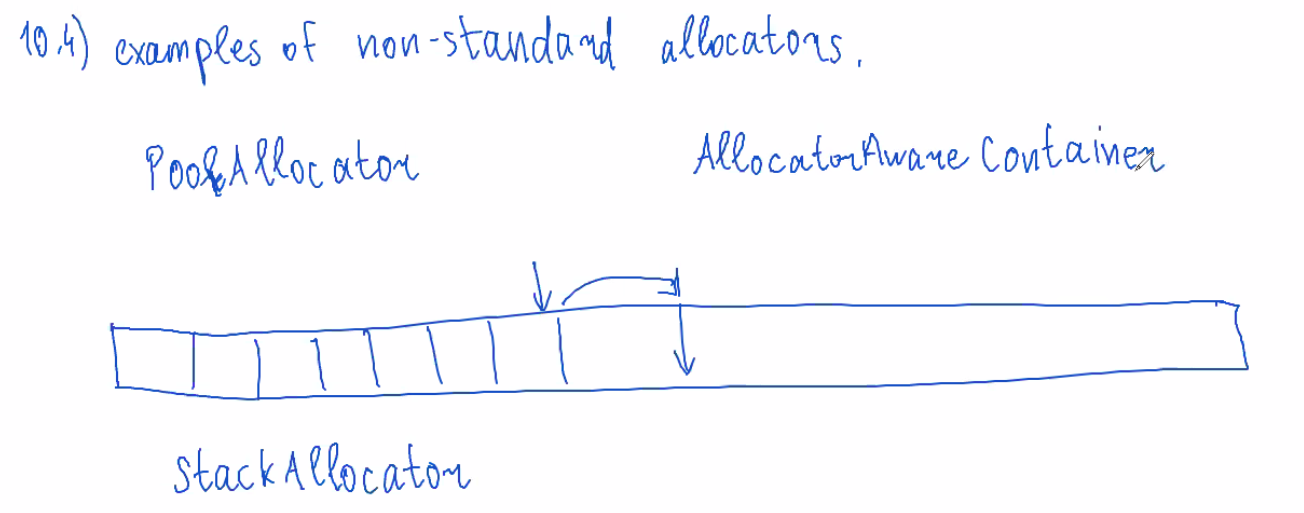 10.4) examples of non-standard allocators.
PoolAllocator
AllocatorAware Container
StackAllocator